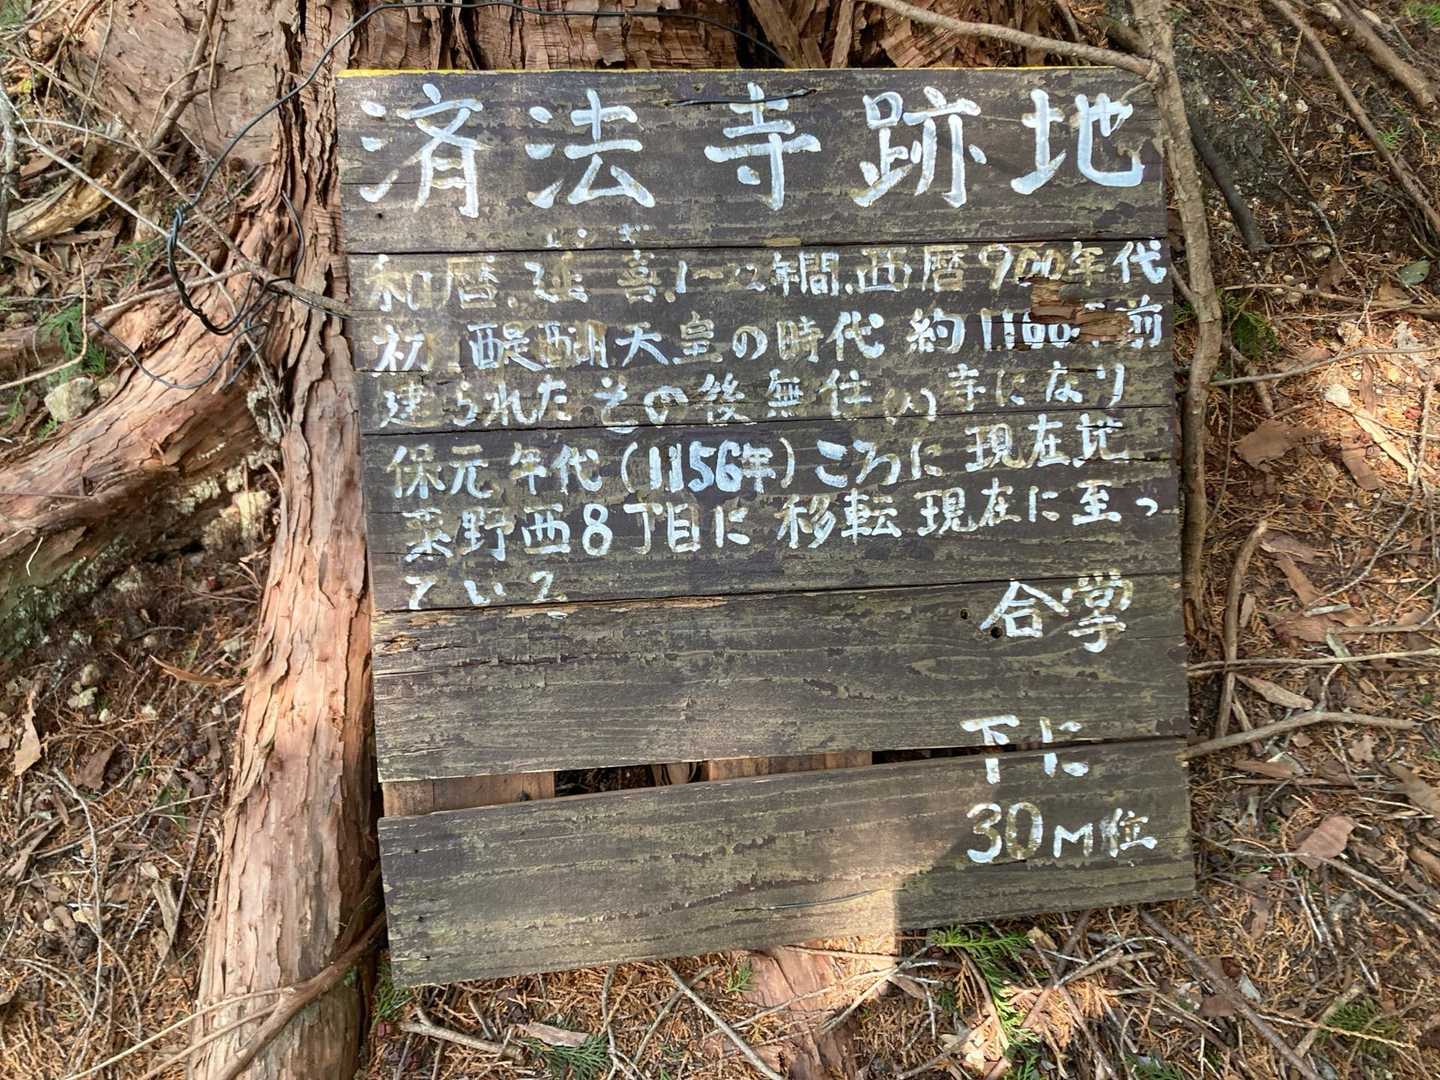 済法寺跡地
いぎ
和暦.延喜.1〜22年間.西暦900年代
初 醍醐天皇の時代 約1160 前
建られたその後無住(人)寺になり
保元年代(1156年)ころに現在地
粟野西8丁目に移転現在に至っ
ている
合掌
下に
30M位